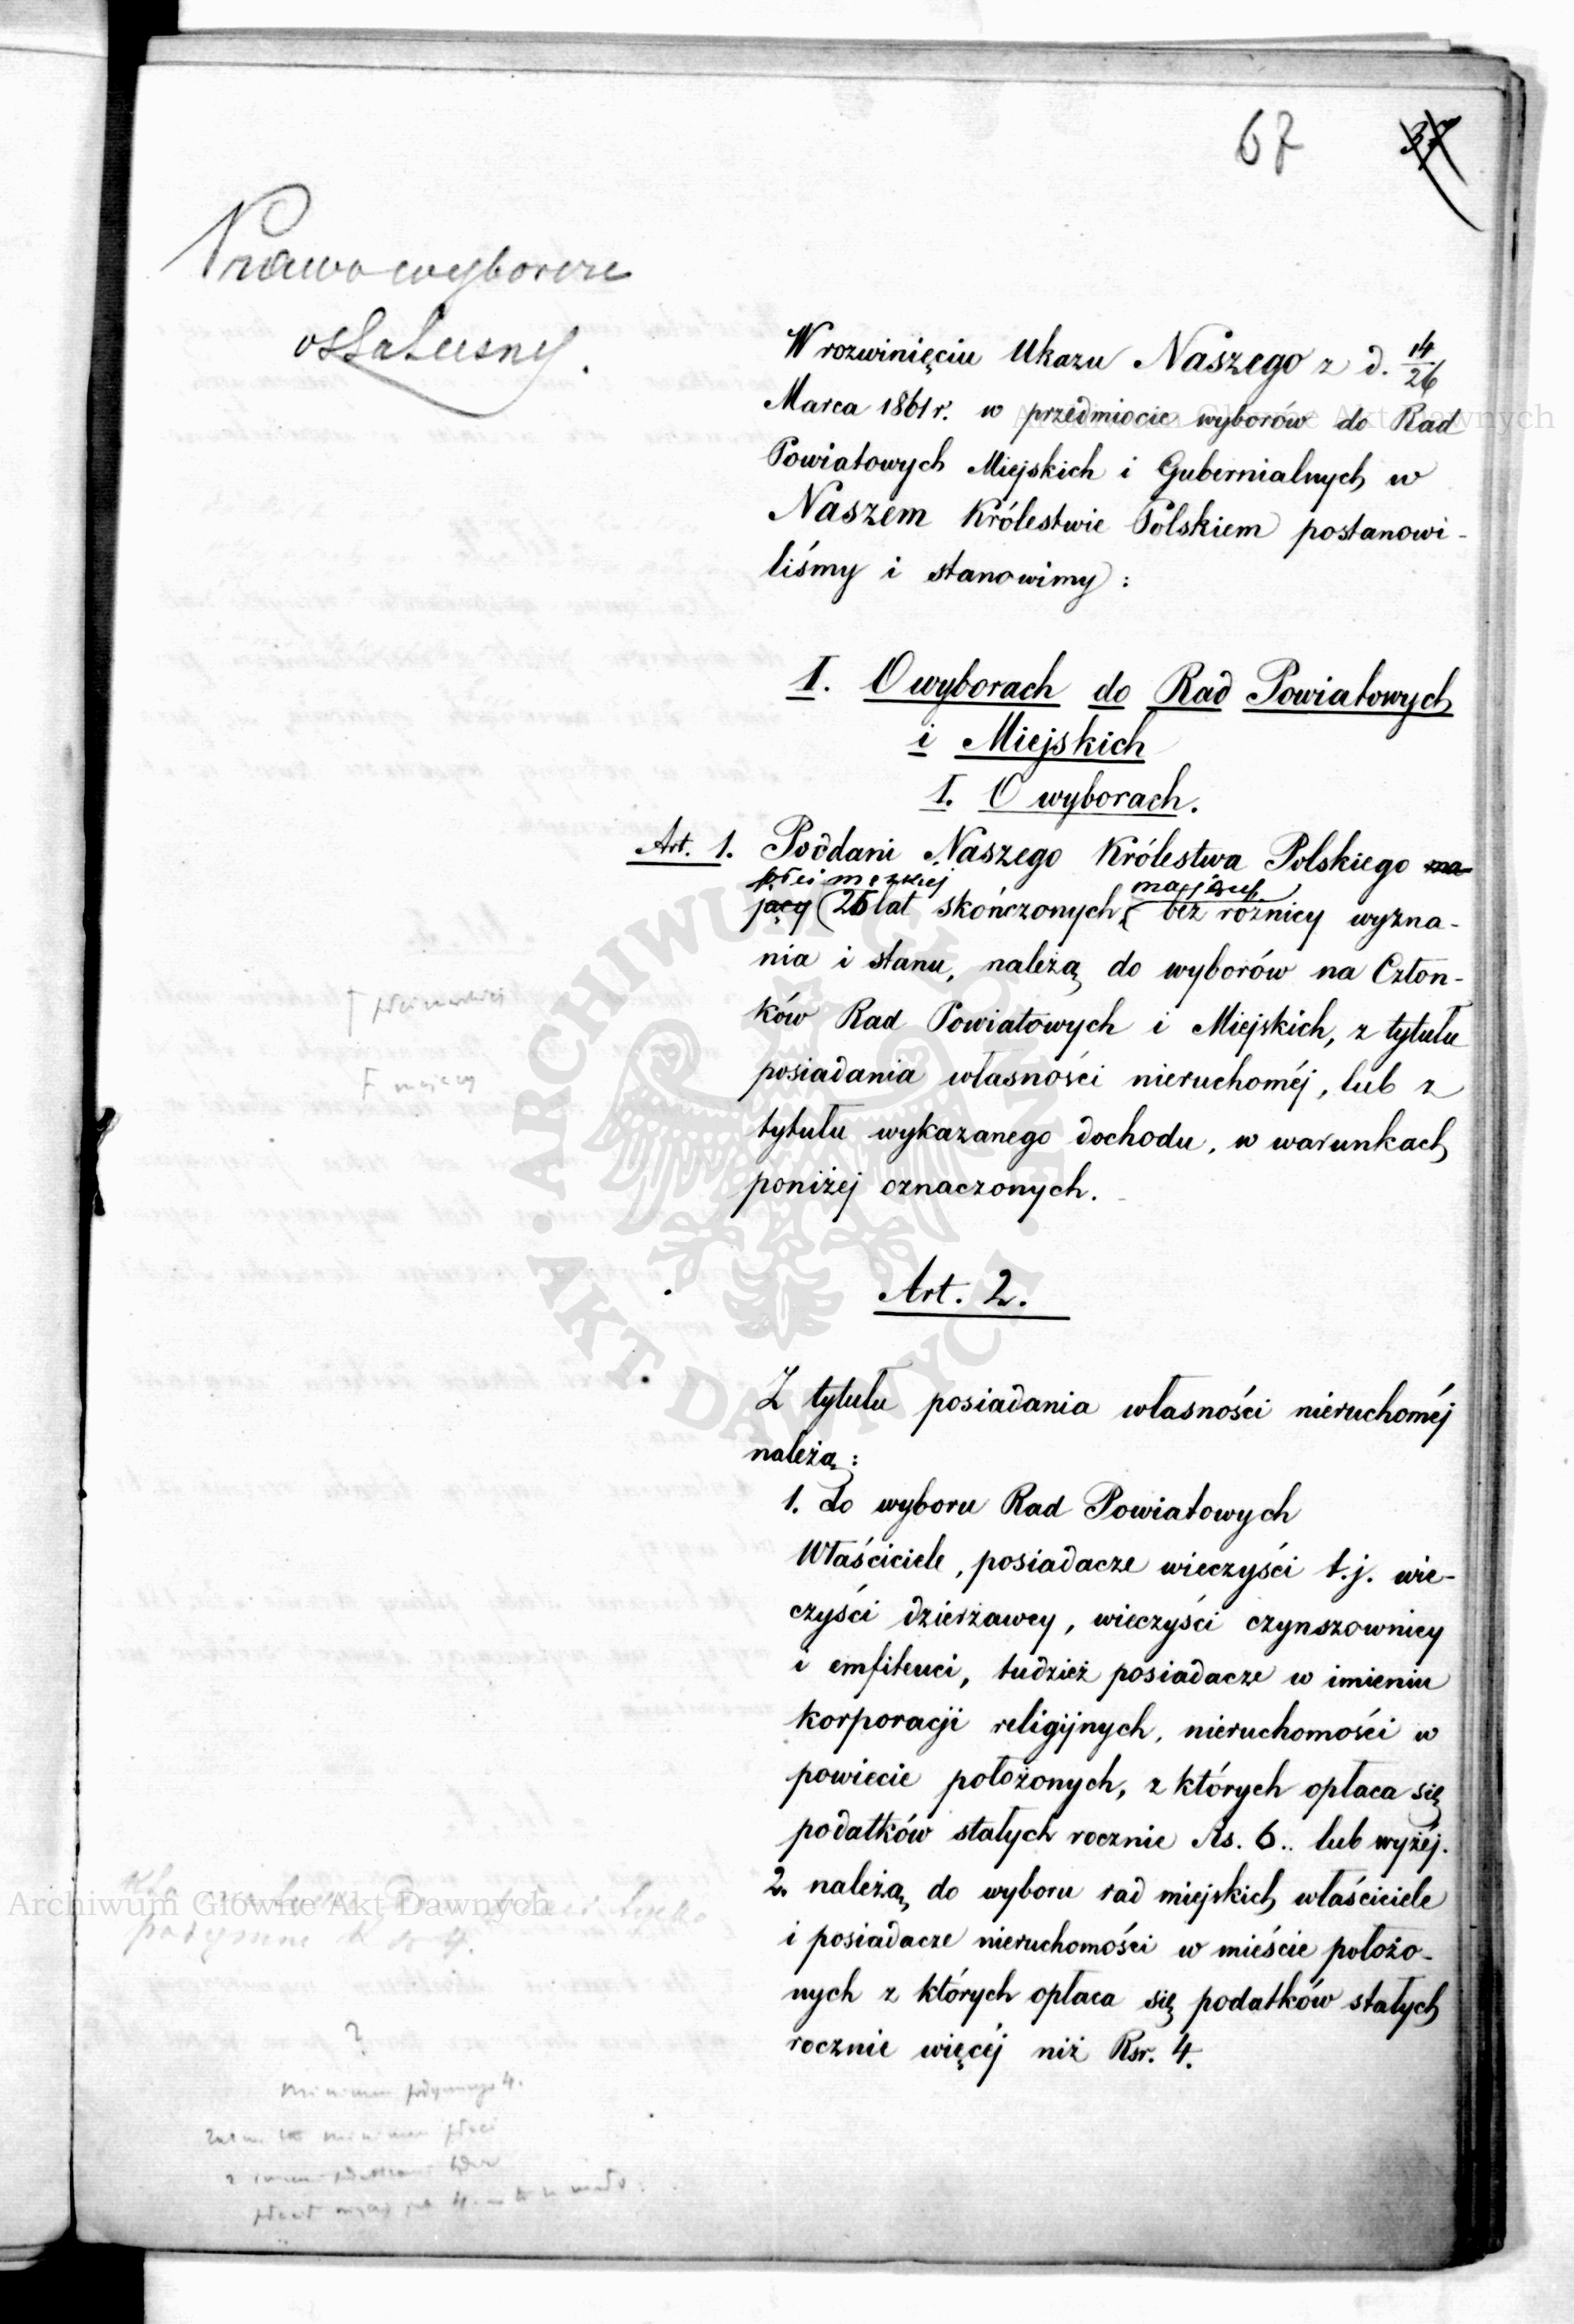 67
37
Prawo wyborcze
ostateczny.
W rozwinięciu Ukazu Naszego z d. 14/26
Marca 1861 r. w przedmiocie wyborów do Rad
Powiatowych Miejskich i Gubernialnych w
Naszem Królestwie Polskiem postanowi-
liśmy i stanowimy:
I. O wyborach do Rad Powiatowych
i Miejskich
I. O wyborach.
Art. 1. Poddani Naszego Królestwa Polskiego ma-
płci męzkiej mający
jący 25 lat skończonych, bez różnicy wyzna-
nia i stanu, należą do wyborów na Człon-
ków Rad Powiatowych i Miejskich, z tytułu
posiadania własności nieruchoméj, lub z
tytułu wykazanego dochodu, w warunkach
poniżej oznaczonych.
płci męzkiej
mający
Art. 2.
Z tytułu posiadania własności nieruchoméj
należą:
1. do wyboru Rad Powiatowych
Właściciele, posiadacze wieczyści t.j. wie-
czyści dzierżawcy, wieczyści czynszownicy
i emfiteuci, tudzież posiadacze w imieniu
korporacji religijnych, nieruchomości w
powiecie położonych, z których opłaca się
podatków stałych rocznie Rs. 6.. lub wyżéj.
2. należą do wyboru rad miejskich właściciele
i posiadacze nieruchomości w mieście położo-
nych z których opłaca się podatków stałych
rocznie więcéj niż Rsr. 4.
?
minimum podymnego 4.
minimum płaci
ARCHIWUM GŁÓWNE · AKT DAWNYCH ·
Archiwum Główne Akt Dawnych
Archiwum Główne Akt Dawnych